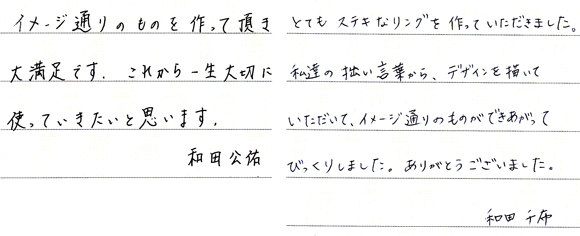 イメージ通りのものを作って頂き
大満足です。これから一生大切に
使っていきたいと思います。
和田公佑
とてもステキなリングを作っていただきました。
私達の拙い言葉から、デザインを描いて
いただいて、イメージ通りのものができあがって
びっくりしました。ありがとうございました。
和田千布